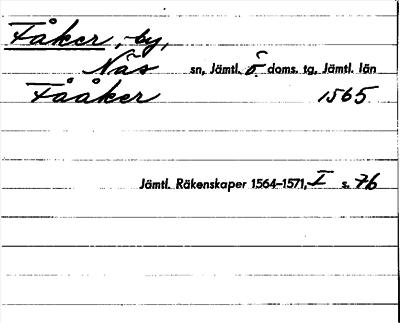 Fåker, by,
Näs sn, Jämtl. ö. doms. tg, Jämtl. län
Fååker 1565
Jämtl. Räkenskaper 1564-1571, I s. 76